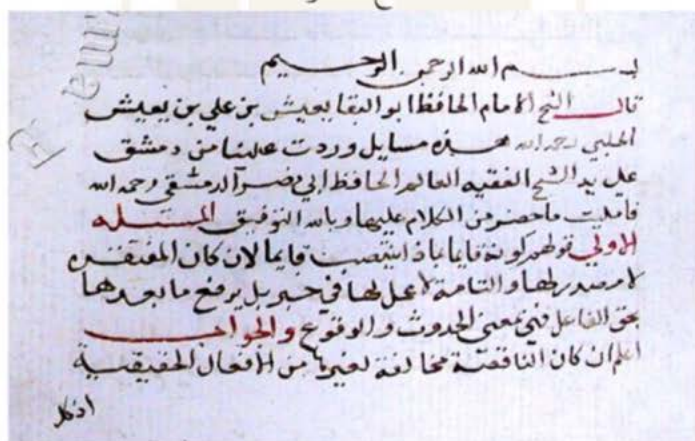 بسم الله الرحمن الرحيم
قال الشيخ الامام الحافظ ابو البقا يعيش بن علي بن يعيش
الحلبي رحمه الله هذه مسايل وردت علينا من دمشق
علي يد الشيخ الفقيه العالم الحافظ ابي نصر الدمشقي رحمه الله
فامليت ما حضر من الكلام عليها وبالله التوفيق المسئله
الاولي قولهم كونه قايما بماذا انتصب قايما لان كان المفتقره
لا مصدر لها والتامة لا عمل لها في خبر بل يرفع ما بعدها
بحق الفاعل فهي بمعني الحدوث والوقوع والجواب
اعلم ان كان الناقصة مخالفة لغيرها من الافعال الحقيقية
اذ كل